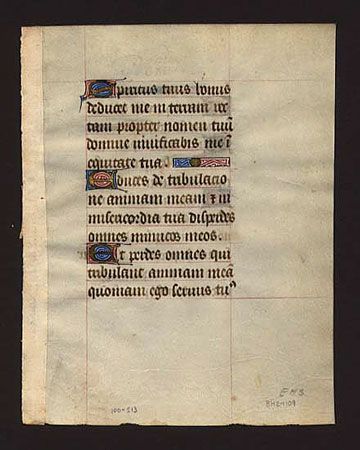 Spiritus tuus bonus
deducet me in terram rec
tam propter nomen tuū
domine vivificabis me ī
equitate tua.
Educes de tribulacio
ne animam meam et in
misericordia tua disperdes
omnes inimicos meos.
Et perdes omnes qui
tribulant animam meā
quoniam ego servus tuꝰ
E.M.S.
100-213